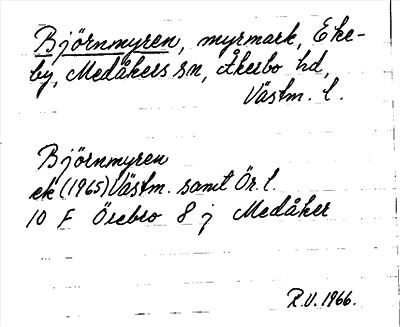 Björnmyren, myrmark, Eke-
by, Medåkers sn, Åkerbo hd,
Västm. l.
Björnmyren
ek (1965) Västm. samt Ör. l.
10 F Örebro 8 j Medåker
R.V. 1966.